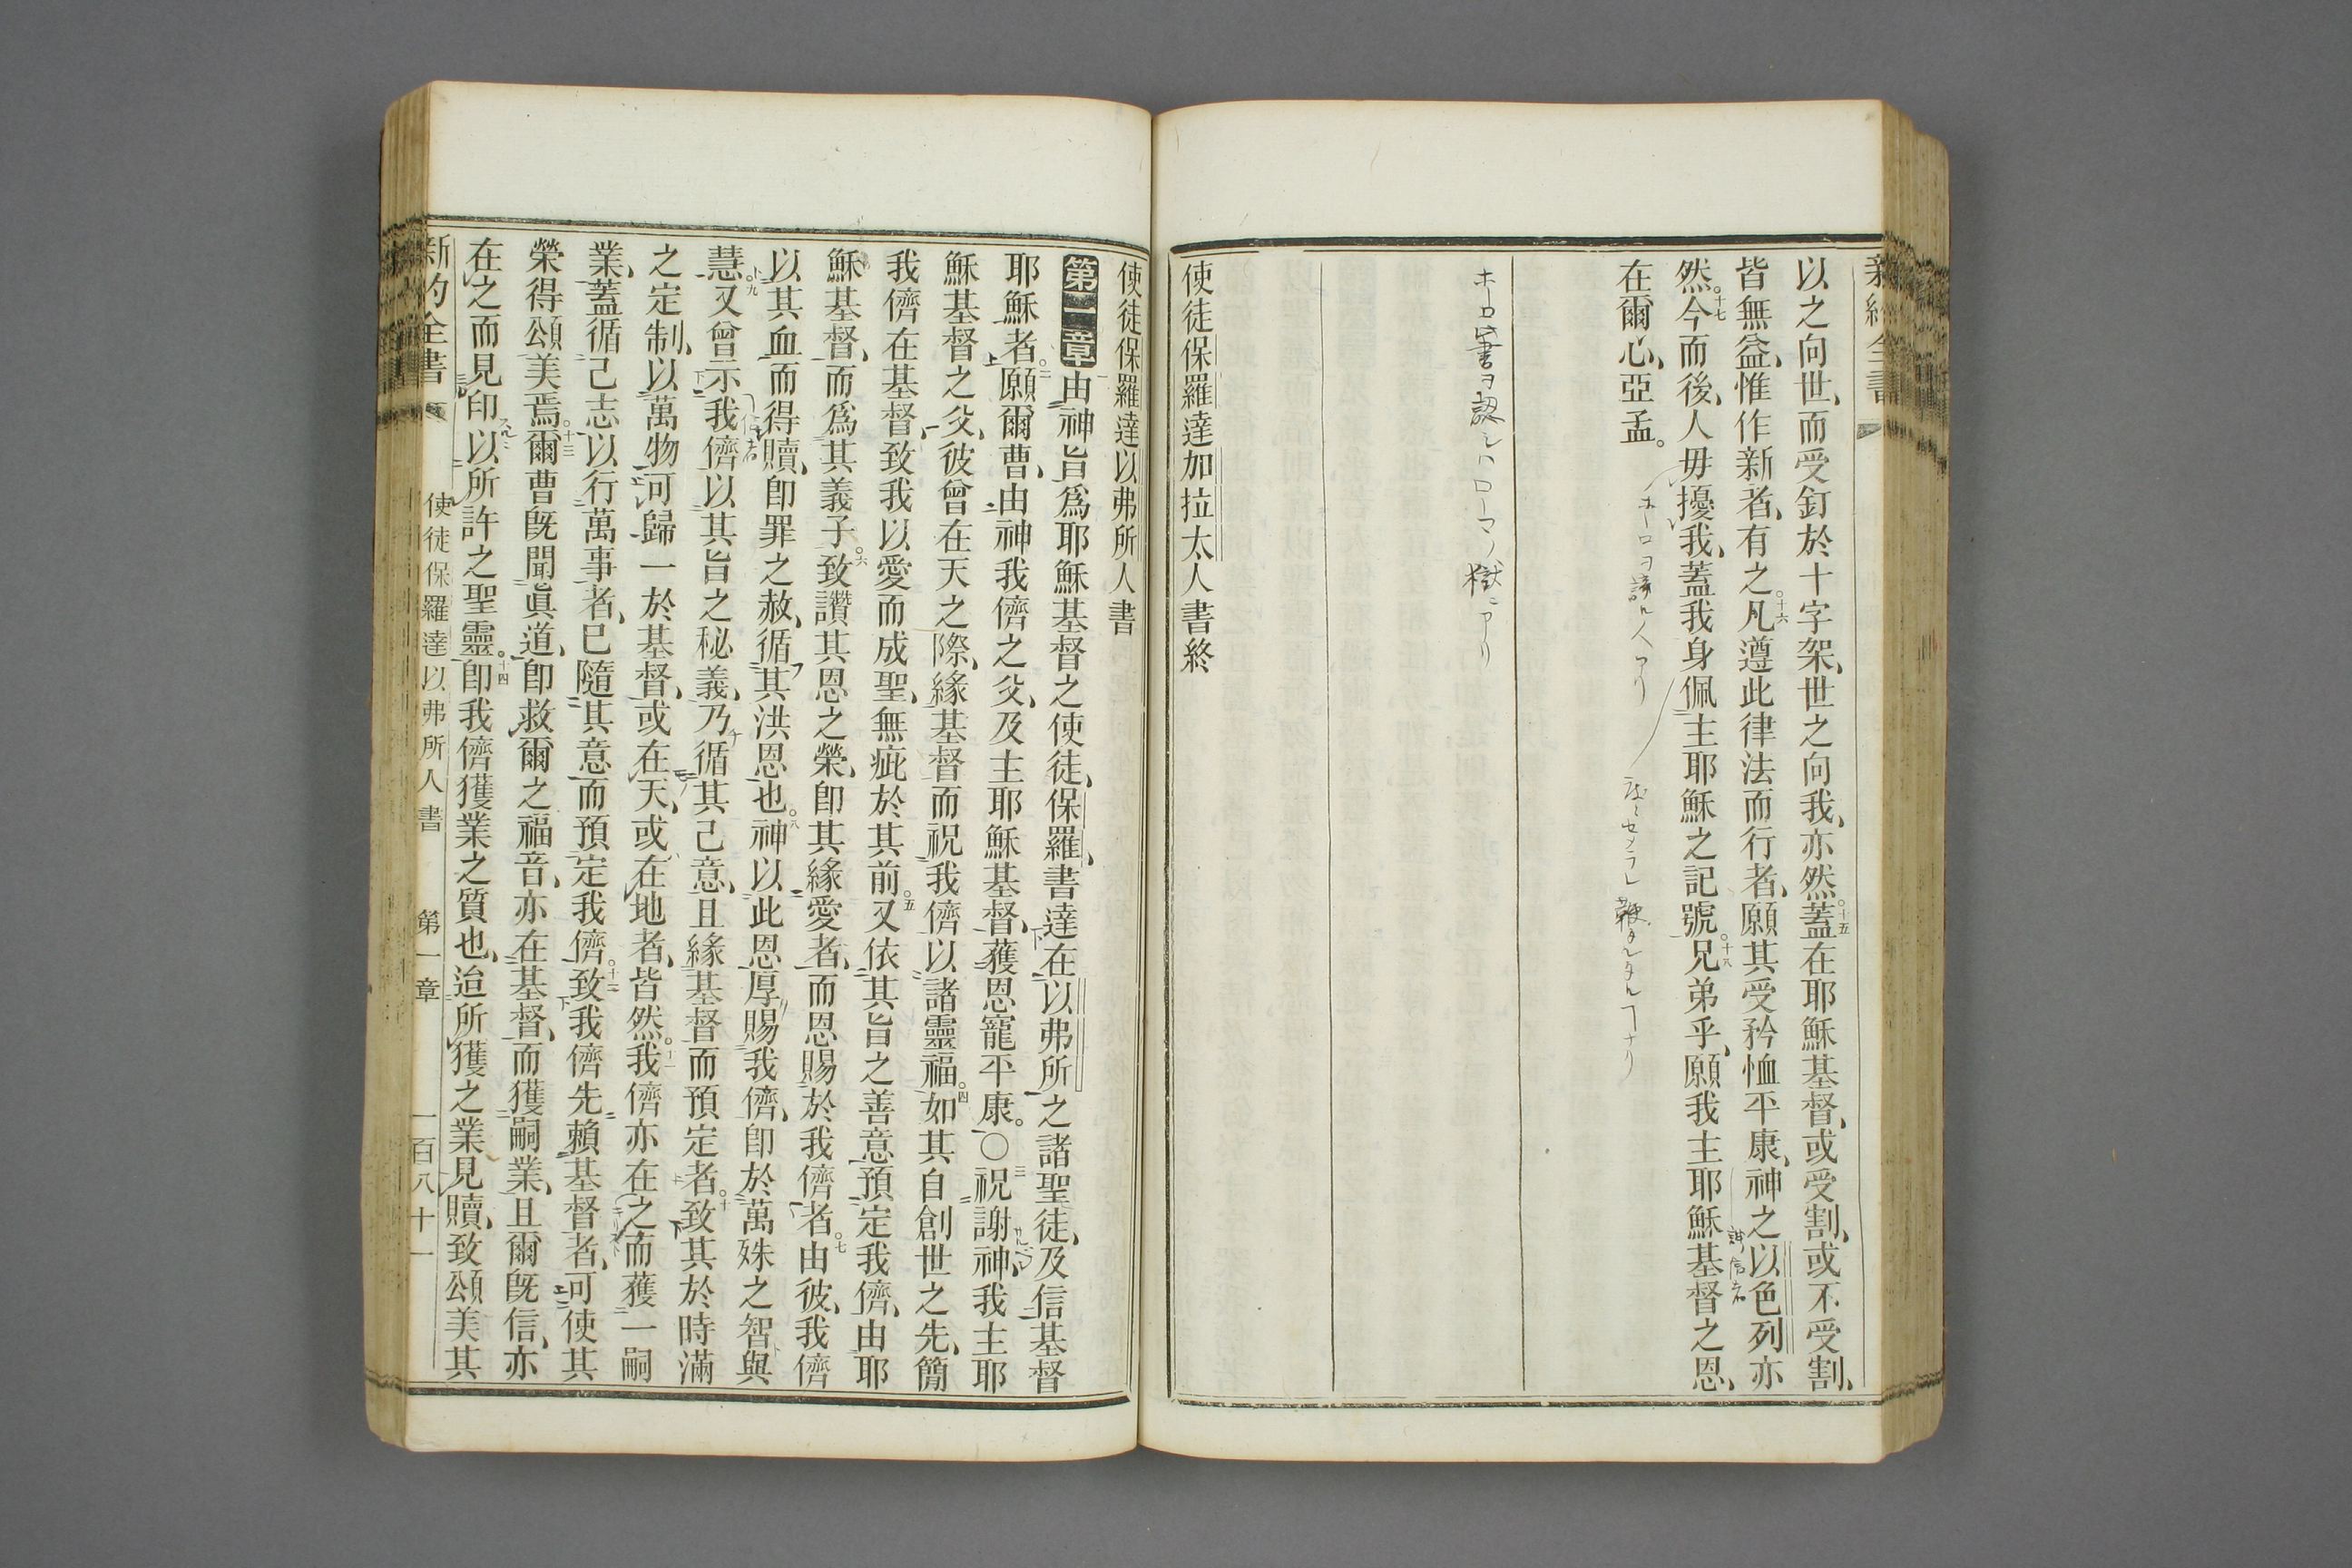 以之向世、而受釘於十字架、世之向我、亦然。十五蓋在耶穌基督、或受割、或不受割、
皆無益、惟作新者、有之。十六凡遵此律法而行者、願其受矜恤平康、神之以色列亦
然。十七今而後、人毋擾我、蓋我身佩主耶穌之記號。十八兄弟乎、願我主耶穌基督之恩、
在爾心、亞孟。
使徒保羅達加拉太人書終
使徒保羅達以弗所人書
第一章 由神旨爲耶穌基督之使徒、保羅、書達在以弗所之諸聖徒、及信基督
耶穌者。二願爾曹、由神我儕之父、及主耶穌基督、獲恩寵平康。〇三祝謝神、我主耶
穌基督之父、彼曾在天之際、緣基督而祝我儕以諸靈福。四如其自創世之先、簡
我儕在基督、致我以愛而成聖、無疵於其前。五又依其旨之善意預定我儕、由耶
穌基督、而爲其義子。六致讚其恩之榮、卽其緣愛者、而恩賜於我儕者。七由彼、我儕
以其血而得贖、卽罪之赦、循其洪恩也。八神以此恩厚賜我儕、卽於萬殊之智與
慧。九又曾示我儕以其旨之秘義、乃循其己意、且緣基督而預定者。十致其於時滿
之定制、以萬物可歸一於基督、或在天、或在地者、皆然。十一我儕亦在之而獲一嗣
業、蓋循己志以行萬事者、已隨其意而預定我儕。十二致我儕先賴基督者、可使其
榮得頌美焉。十三爾曹旣聞眞道、卽救爾之福音、亦在基督、而獲嗣業、且爾旣信、亦
在之而見印、以所許之聖靈。十四卽我儕獲業之質也、迨所獲之業見贖、致頌美其
新約全書 使徒保羅達以弗所人書 第一章 一百八十一